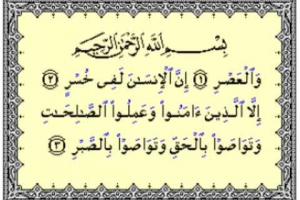 بِسْمِ اللَّهِ الرَّحْمَٰنِ الرَّحِيمِ
وَالْعَصْرِ ﴿١﴾ إِنَّ الْإِنسَٰنَ لَفِى خُسْرٍ ﴿٢﴾
إِلَّا الَّذِينَ ءَامَنُوا۟ وَعَمِلُوا۟ الصَّٰلِحَٰتِ
وَتَوَاصَوْا۟ بِالْحَقِّ وَتَوَاصَوْا۟ بِالصَّبْرِ ﴿٣﴾